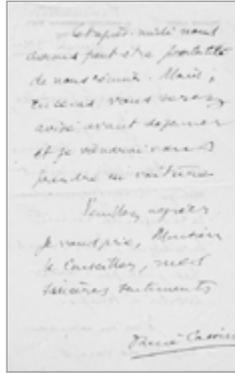 cet après-midi nous
avons peut être possibilité
de nous réunir. Mais,
en ce cas, vous serez
avisé avant déjeuner
et je viendrai vous
prendre en voiture
Veuillez agréer
je vous prie, Monsieur
le Conseiller, mes
sincères sentiments